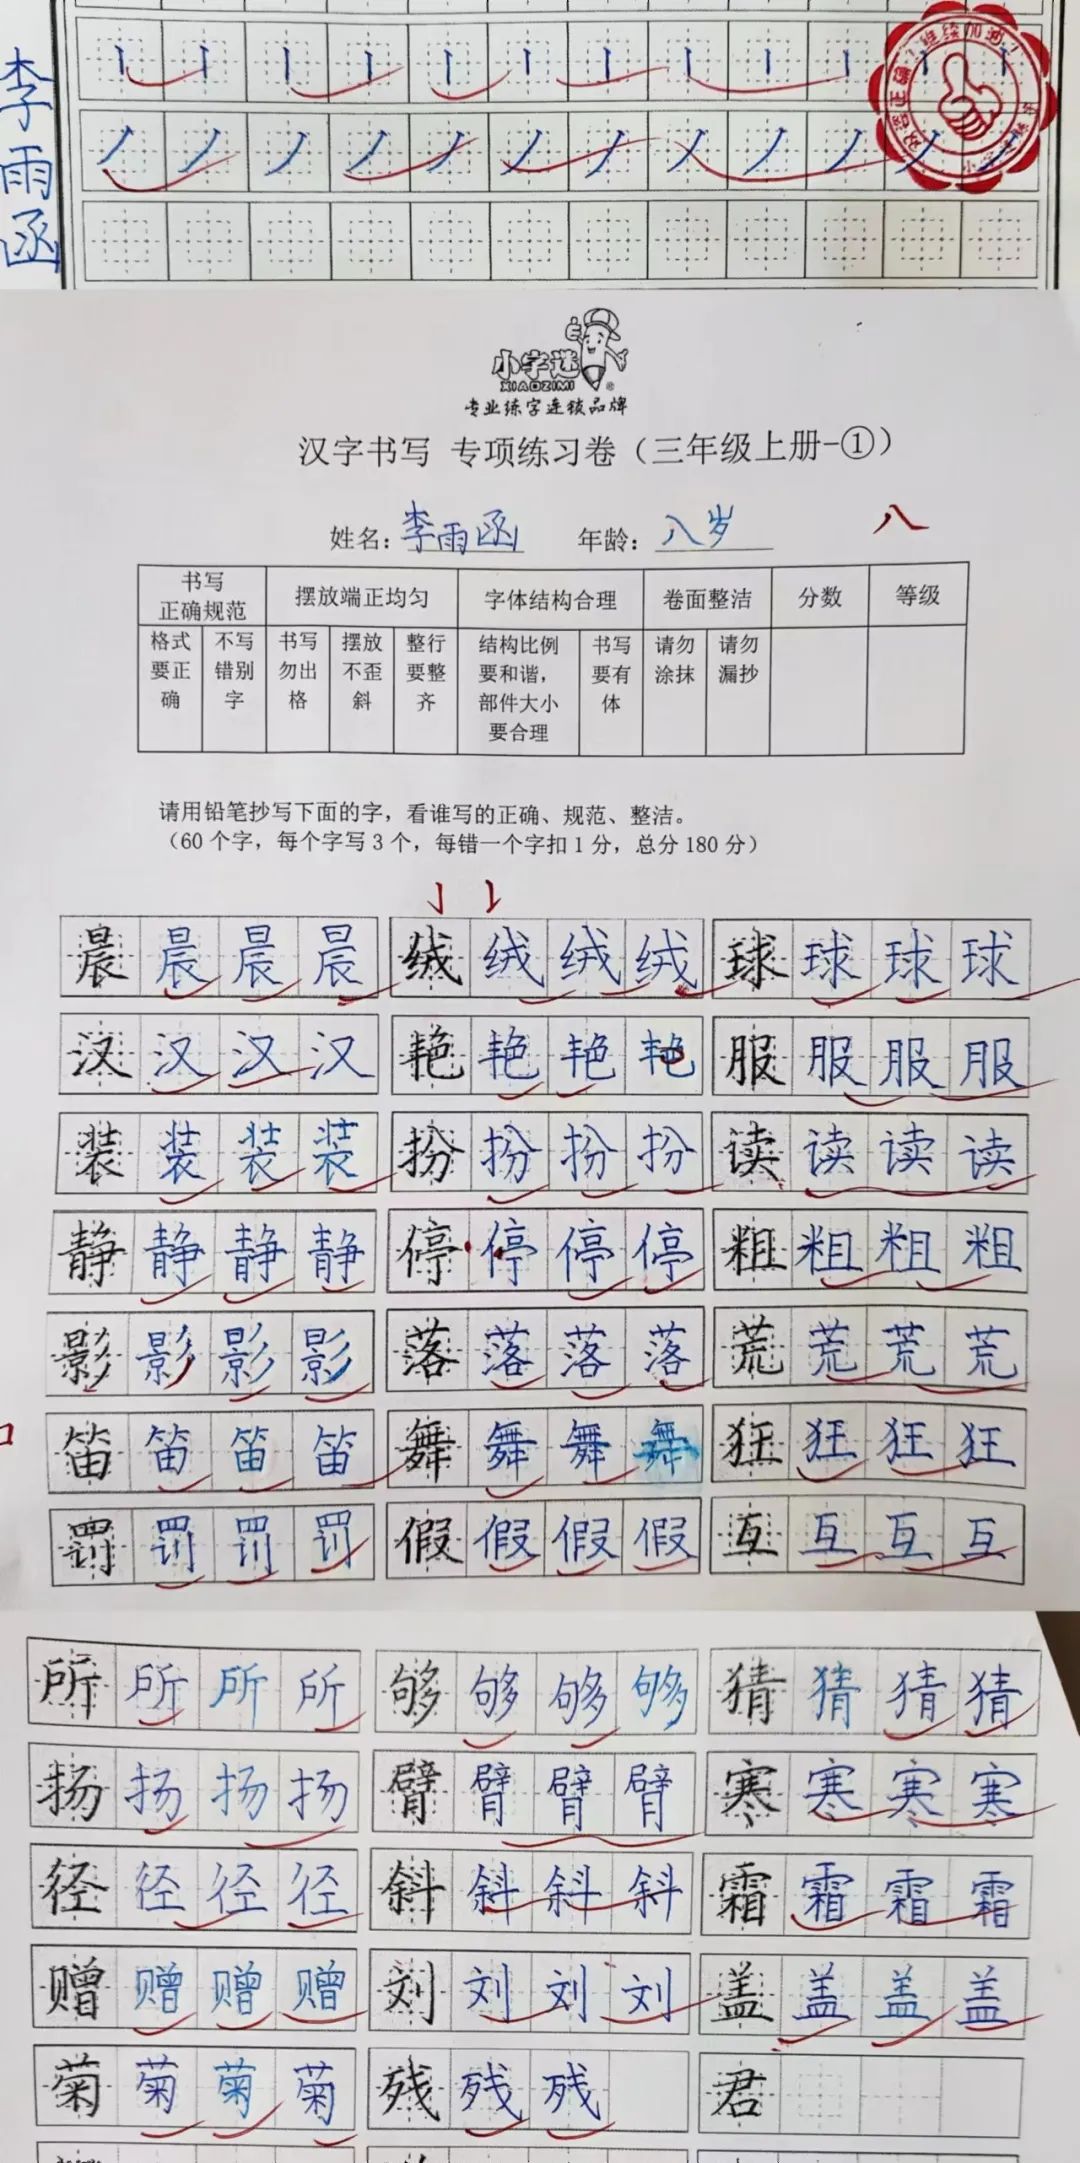 李雨函
小字迷
XIAOZIMI
专业练字连锁品牌
汉字书写 专项练习卷（三年级上册-①）
姓名：李雨函 年龄：八岁 八
书写正确规范 摆放端正均匀 字体结构合理 卷面整洁 分数 等级
格式要正确 不写错别字 书写勿出格 摆放不歪斜 整行要整齐 结构比例要和谐，部件大小要合理 书写要有体 请勿涂抹 请勿漏抄
请用铅笔抄写下面的字，看谁写的正确、规范、整洁。
（60个字，每个字写3个，每错一个字扣1分，总分180分）
晨晨晨晨 绒绒绒绒 球球球球
汉汉汉汉 艳艳艳艳 服服服服
装装装装 扮扮扮扮 读读读读
静静静静 停停停停 粗粗粗粗
影影影影 落落落落 荒荒荒荒
笛笛笛笛 舞舞舞舞 狂狂狂狂
罚罚罚罚 假假假假 互互互互
所所所所 够够够够 猜猜猜猜
扬扬扬扬 臂臂臂臂 寒寒寒寒
径径径径 斜斜斜斜 霜霜霜霜
赠赠赠赠 刘刘刘刘 盖盖盖盖
菊菊菊菊 残残残 君